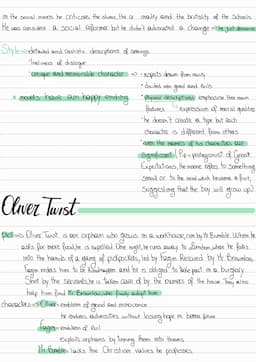 in the social novels he criticizes the slums, the cruelty and the brutality of the schools
He was considers a social reformer but he didn't advanced a change → he just denounce
Style → detailed and realistic descriptions of settings
liveliness of dialogue
unique and memorable character → • aspects drawn from reality
• divided into good and bads
* novels have an happy ending
• Physical descriptions emphasise their main
features → expression of moral qualities
• he doesn't create a type but each
character is different from others
• even the names of his characters are
significant (Pip = protagonist of Great
Expectations, the name refers to something
small or to the seed which becomes a fruit,
suggesting that the boy will grow up)
Oliver Twist
plot → Oliver Twist is an orphan who grows in a workhouse, run by Mr Bumble. When he
asks for more food, he is expelled. One night, he runs away to London where he falls
into the hands of a gang of pickpockets, led by Fagin. Rescued by Mr Brownlow,
Fagin orders him to be kidnapped and he is obliged to take part in a burglary.
Shot by the servants, he is taken care of by the owners of the house. They also
help him find Mr Brownlow, who finally adopt him
characters → Oliver = emblem of good and innocence
he endures adversities without losing hope in better future
Fagin = emblem of evil
exploits orphans by turning them into thieves
Mr Bumble = lacks the Christian values he professes